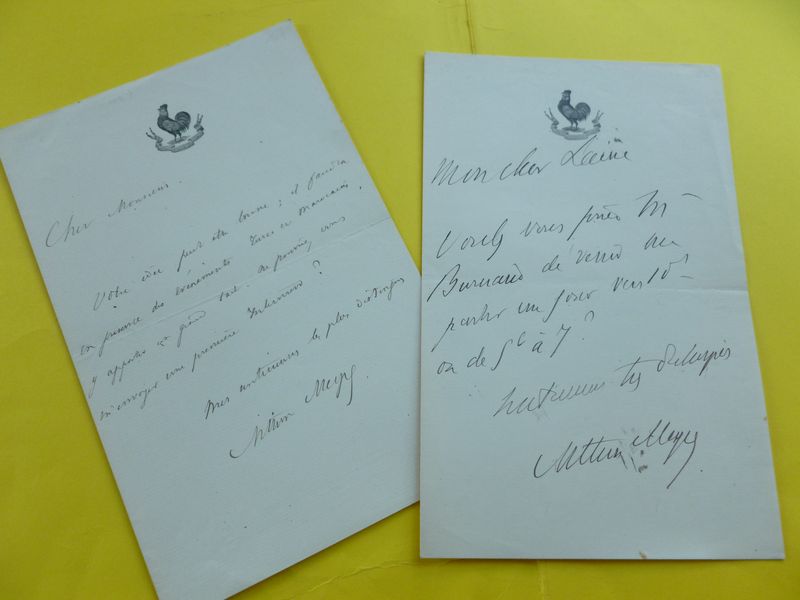 Cher Monsieur
Votre idée peut être bonne ; il faudra
en présence des événements Turcs et Marocains,
y apporter un grand tact. Au pourriez vous
m'envoyer une première ?
Mes sentiments les plus distingués
Arthur Meyer
Mon cher
Voulez vous prier Mr
Burnand de venir me
parler un jour vers 10h
ou de 5h à 7 ?
Arthur Meyer